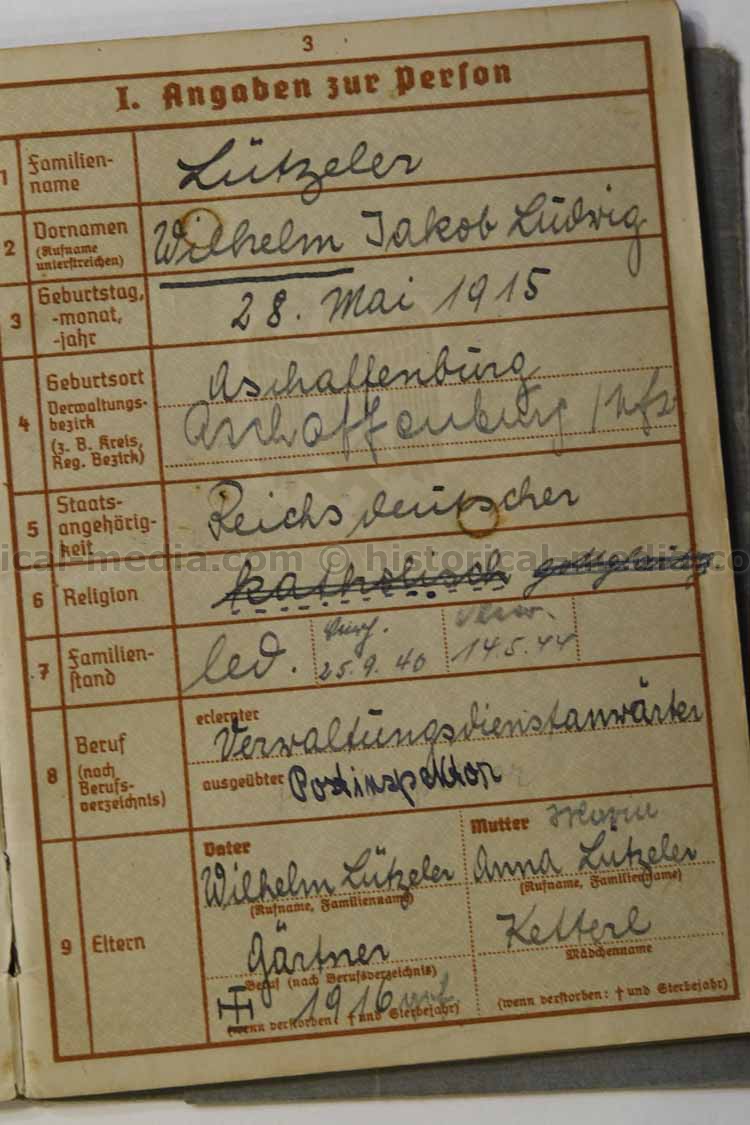 3
I. Angaben zur Person
1 Familien-
name
Lützeler
2 Vornamen
(Rufname
unterstreichen)
Wilhelm Jakob Ludwig
3 Geburtstag,
-monat,
-jahr
28. Mai 1915
4 Geburtsort
Verwaltungs-
bezirk
(z. B. Kreis,
Reg. Bezirk)
Aschaffenburg
Aschaffenburg
5 Staats-
angehörig-
keit
Reichsdeutscher
ical-media.com © historical-media.co
6 Religion
katholisch
7 Familien-
stand
led.
25.9.40
14.5.44
8 Beruf
(nach
Berufs-
verzeichnis)
erlernter
Verwaltungsdienstanwärter
ausgeübter Postinspektor
9 Eltern
Vater
Wilhelm Lützeler
(Rufname, Familienname)
Gärtner
Beruf (nach Berufsverzeichnis)
1916
(wenn verstorben: † und Sterbejahr)
Mutter
Anna Lützeler
(Rufname, Familienname)
Ketterl
Mädchenname
(wenn verstorben: † und Sterbejahr)